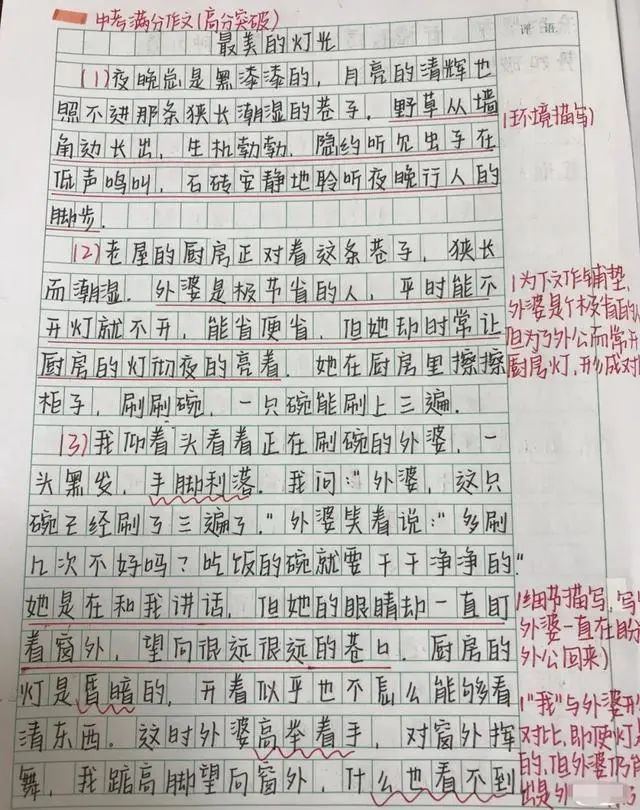 中考满分作文(高分突破)
最美的灯光
评语
(1)夜晚总是黑漆漆的，月亮的清辉也
照不进那条狭长潮湿的巷子，野草从墙
角边长出，生机勃勃，隐约听见虫子在
低声鸣叫，石砖安静地聆听夜晚行人的
脚步.
(环境描写)
(2)老屋的厨房正对着这条巷子，狭长
而潮湿．外婆是极节省的人，平时能不
开灯就不开，能省便省，但她却时常让
厨房的灯彻夜的亮着．她在厨房里擦擦
柜子，刷刷碗，一只碗能刷上三遍．
(为下文作铺垫,
外婆是个极省的
但为了外公而常开
厨房灯,形成对
(3)我仰着头看着正在刷碗的外婆，一
头黑发，手脚利落．我问："外婆，这只
碗已经刷了三遍了．"外婆笑着说："多刷
几次不好吗？吃饭的碗就要干干净净的"
她是在和我讲话，但她的眼睛却一直盯
着窗外，望向很远很远的巷口．厨房的
灯是昏暗的，开着似乎也不怎么能够看
清东西．这时外婆高举着手，对窗外挥
舞，我踮高脚望向窗外，什么也看不到
(细节描写,写
外婆一直在盼
外公回来)
("我"与外婆形
对比,即便灯
的,但外婆仍
出是外